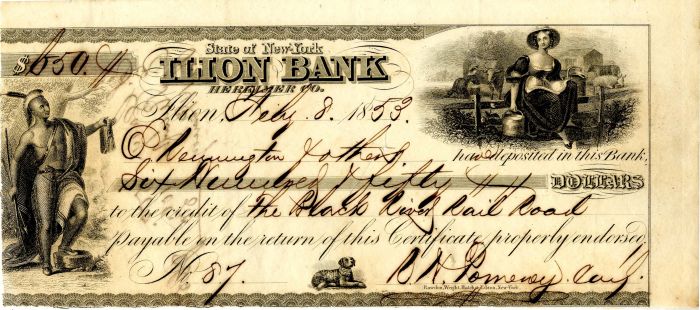 State of New-York
$650.
ILION BANK
HERKIMER CO.
Ilion, Feby. 8. 1853.
C Pennington & others have deposited in this Bank,
Six Hundred & fifty DOLLARS
to the credit of The Black River Rail Road
Payable on the return of this Certificate properly endorsed.
No. 87. Cash.
Rawdon, Wright, Hatch & Edson, New-York.